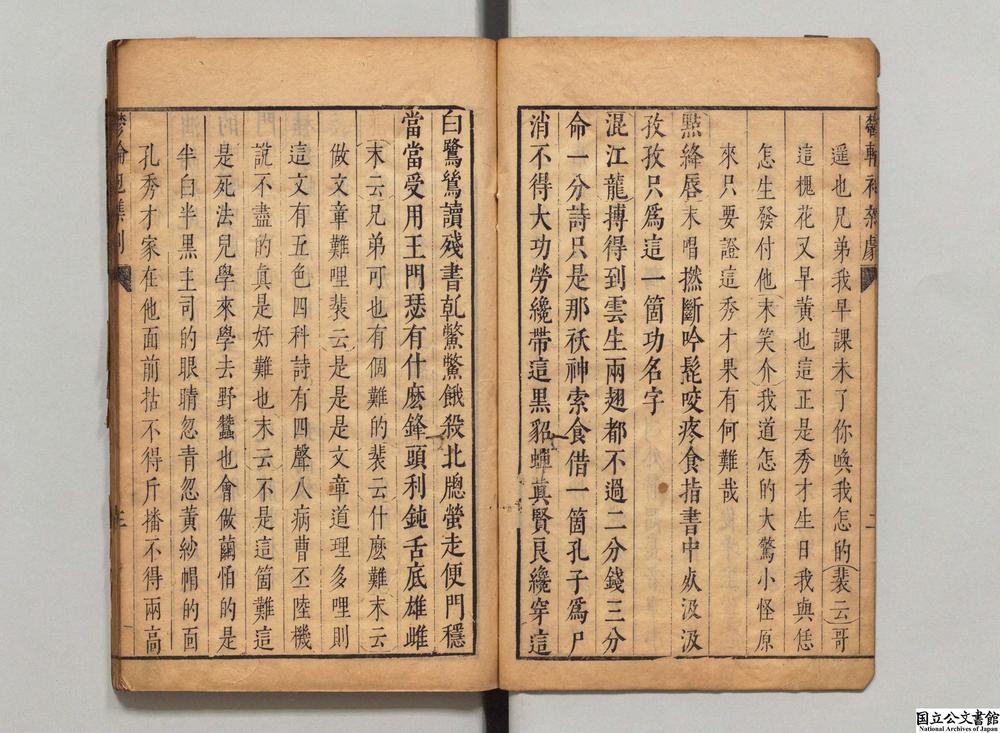 鬱輪袍雜劇
遥也兄弟我早課未了你喚我怎的裴云哥
這槐花又早黄也這正是秀才生日我與恁
怎生發付他末笑介我道怎的大驚小怪原
來只要證這秀才果有何難哉
點絳唇末唱撚斷吟髭咬疼食指書中炏汲汲
孜孜只爲這一箇功名字
混江龍搏得到雲生兩翅都不過二分錢三分
命一分詩只是那祆神索食借一箇孔子爲尸
消不得大功勞纔帶這黑貂蟬真賢良纔穿這
白鷺鷥讀殘書乹鱉鱉餓殺北牕螢走便門穩
當當受用王門瑟有什麽鋒頭利鈍舌底雄雌
末云兄弟可也有個難的裴云什麽難末云
做文章難哩裴云是是是文章道理多哩則
這文有五色四科詩有四聲八病曹丕陸機
說不盡的真是好難也末云不是這箇難這
是死法兒學來學去野蠶也會做繭怕的是
半白半黑主司的眼睛忽青忽黄紗帽的面
孔秀才家在他面前拈不得斤播不得兩高
国立公文書館
National Archives of Japan